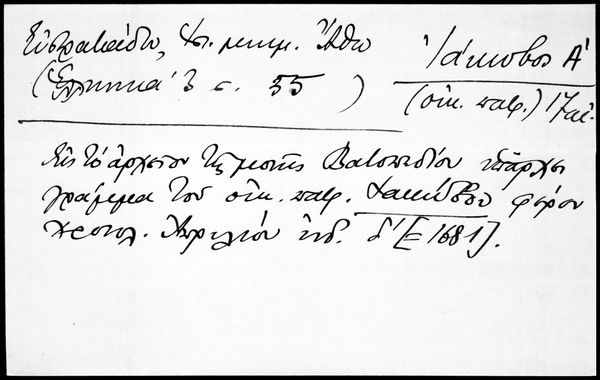 Εὐστρατιάδου, Ἱστ. μνημ. Ἄθω
(Ἑλληνικά 3 σ. 55)
Ἰάκωβος Α΄
(οἰκ. πατρ.) 17 αἰ.
Εἰς τὸ ἀρχεῖον τῆς μονῆς Βατοπεδίου ὑπάρχει
γράμμα τοῦ οἰκ. πατρ. Ἰακώβου φέρον
χρονολ. Ἀπριλίου ἰνδ. δ΄ [= 1681].